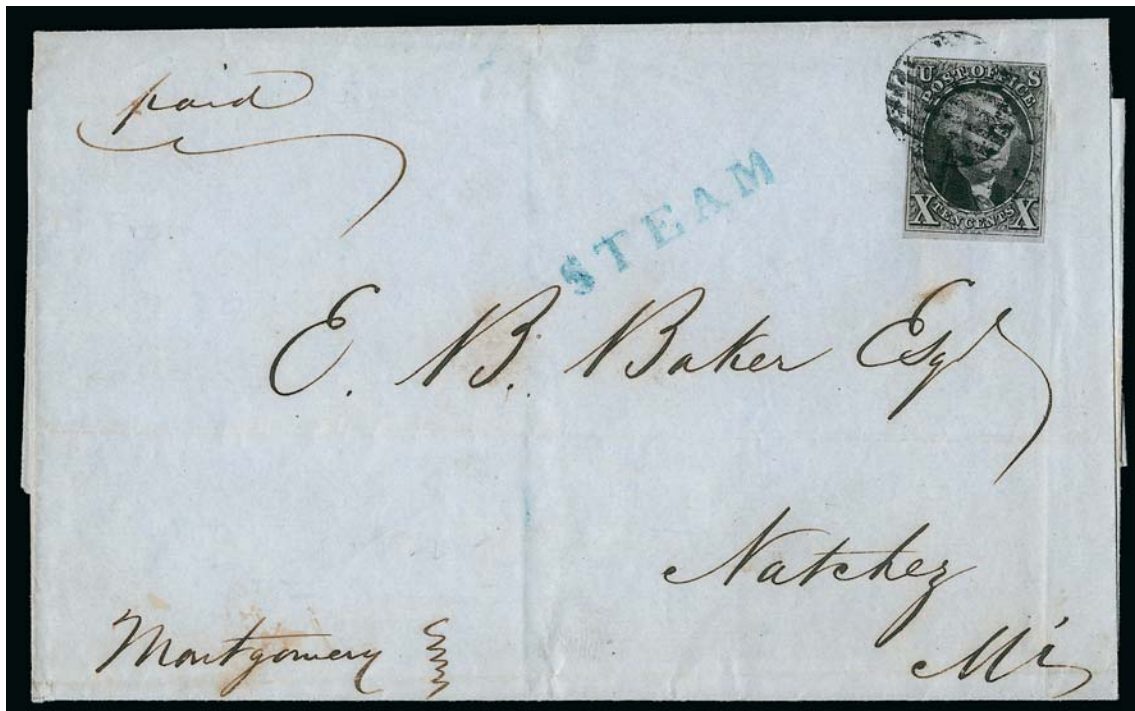 paid
U S
POST OFFICE
X TEN CENTS X
STEAM
E. B. Baker Esq
Natchez
Mi
Montgomery